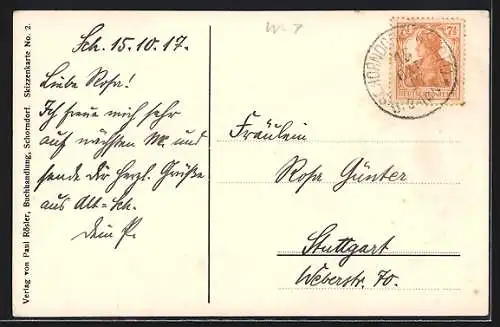 Verlag von Paul Rösler, Buchhandlung, Schorndorf. Skizzenkarte No. 2.
Sch. 15.10.17.
Liebe Rosa!
Ich freue mich sehr
auf nächsten M. und
sende Dir herzl. Grüße
aus Alt=Sch.
Dein P.
7½ 7½
DEUTSCHES REICH
SCHORNDORF
Fräulein
Rosa Günter
Stuttgart
Weberstr. 70.